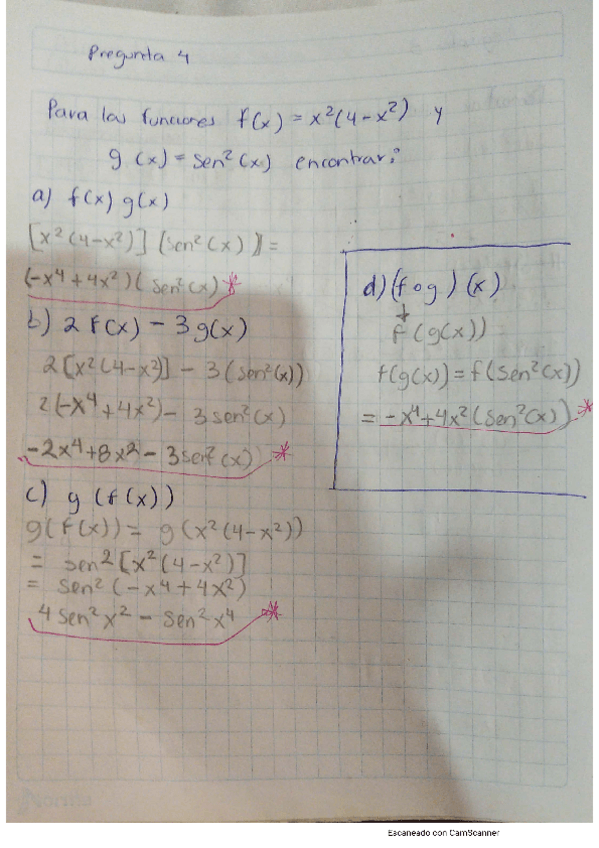 Pregunta 4
Para las funciones f(x) = x²(4-x²) y
g(x) = sen²(x) encontrar:
a) f(x) g(x)
[x²(4-x²)] (sen²(x)) =
(-x⁴+4x²)(sen²(x)
b) 2 f(x) - 3g(x)
2[x²(4-x²)] - 3(sen²(x))
2(-x⁴+4x²) - 3sen²(x)
-2x⁴+8x² - 3sen²(x)
c) g (f(x))
g(f(x)) = g(x²(4-x²))
= sen2[x²(4-x²)]
= sen²(-x⁴+4x²)
4sen²x² - sen²x⁴
d) (f o g) (x)
f (g(x))
f(g(x)) = f(sen²(x))
= -x⁴+4x²(sen²(x))
Escaneado con CamScanner